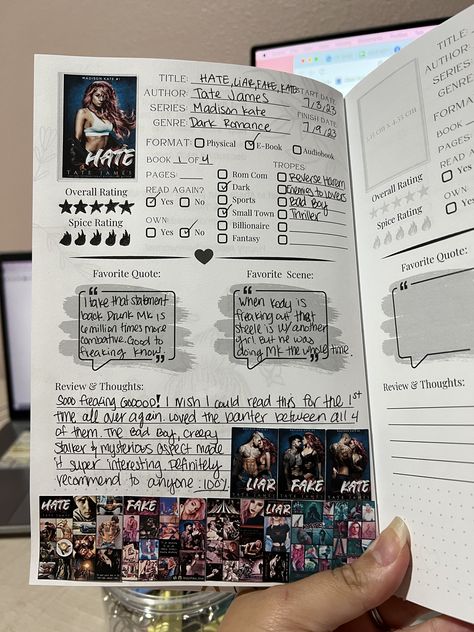 MADISON KATE #1
HATE
TATE JAMES
TITLE: HATE, LIAR, FAKE, KATE
AUTHOR: Tate James
SERIES: Madison Kate
GENRE: Dark Romance
START DATE
7/3/23
FINISH DATE
7/9/23
FORMAT: Physical E-Book Audiobook
BOOK 1 OF 4
PAGES:
READ AGAIN?
Yes No
OWN:
Yes No
Rom Com
Dark
Sports
Small Town
Billionaire
Fantasy
TROPES
Reverse Harem
Enemies to Lovers
Bad Boy
Thriller
Overall Rating
Spice Rating
Favorite Quote:
I take that statement
back. Drunk MK is
a million times more
combative. Good to
freaking know.
Favorite Scene:
When Kody is
freaking out that
Steele is w/ another
girl. But he was
doing MK the whole time.
Review & Thoughts:
Sooo freaking Gooood! I wish I could read this for the 1st
time all over again. Loved the banter between all 4
of them. The Bad Boy, creepy
stalker & mysterious aspect made
it super interesting. Definitely
recommend to anyone. 100%
LIAR
TATE JAMES
FAKE
TATE JAMES
KATE
TATE JAMES
HATE
FAKE
LIAR
TITLE:
AUTHOR:
SERIES:
GENRE:
FORMAT:
BOOK
PAGES:
READ AGAIN?
Yes
OWN:
Yes
Overall Rating
Spice Rating
Favorite Quote:
Review & Thoughts: